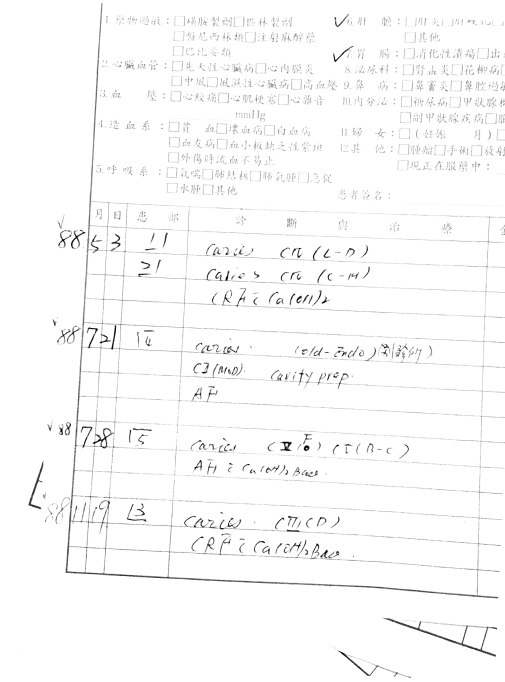 1.藥物過敏：□磺胺製劑□匹林製劑
□盤尼西林類□注射麻醉藥
□巴比妥類
2.心臟血管：□先天性心臟病□心內膜炎
□中風□風濕性心臟病□高血壓
3.血　壓：□心絞痛□心肌梗塞□心雜音
mmHg
4.造血系：□貧　血□壞血病□白血病
□血友病□血小板缺乏性紫斑
□外傷時流血不易止
5.呼吸系：□氣喘□肺結核□肺氣腫□急促
□水腫□其他
✓6.肝　膽：□肝炎□肝硬化
□其他
✓7.胃　腸：□消化性潰瘍□出
8.泌尿科：□腎盂炎□花柳病
9.鼻　病：□鼻竇炎□鼻腔過敏
10.內分泌：□糖尿病□甲狀腺
□副甲狀腺疾病□
11.婦　女：□(妊娠　月)□
12.其　他：□腫瘤□手術□放射
□現正在服藥中：
患者簽名：
月 日 患部 診斷與治療
✓88 5 3 11 caries CIV (L-D)
21 caries CIV (C-M)
CRF c Ca(OH)2
✓88 7 21 caries (old-Endo)
C3 (MoD). cavity prep.
AF
✓88 7 28 15 caries (B-C)
AF c Ca(OH)2 Base
88 11 19 13 caries CIII (D)
CRF c Ca(OH)2 Base.